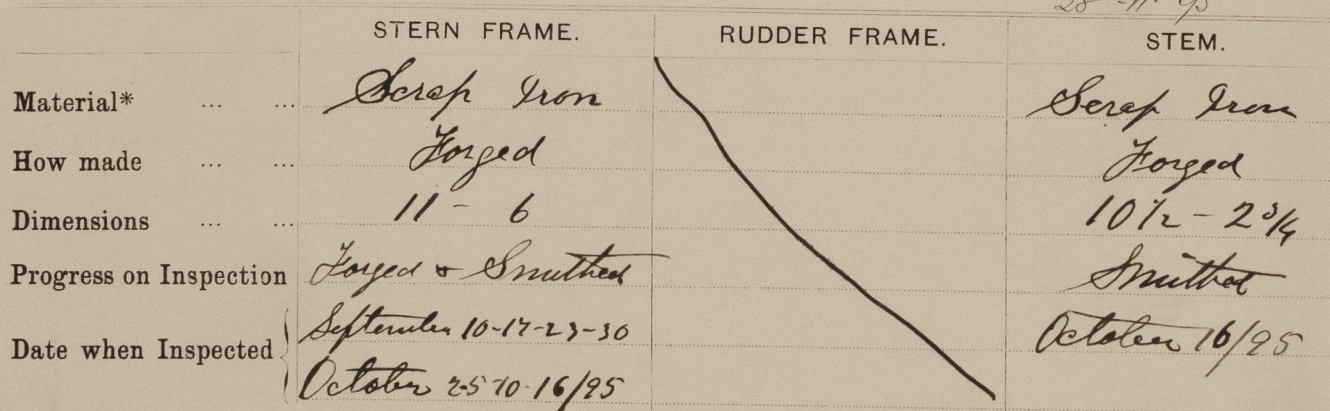 28-11-95
STERN FRAME. RUDDER FRAME. STEM.
Material* ... ... Scrap Iron Scrap Iron
How made ... ... Forged Forged
Dimensions ... ... 11 - 6 10 1/2 - 2 3/4
Progress on Inspection Forged & Smithed Smithed
Date when Inspected September 10-17-23-30 October 16/95
October 2-5-10-16/95